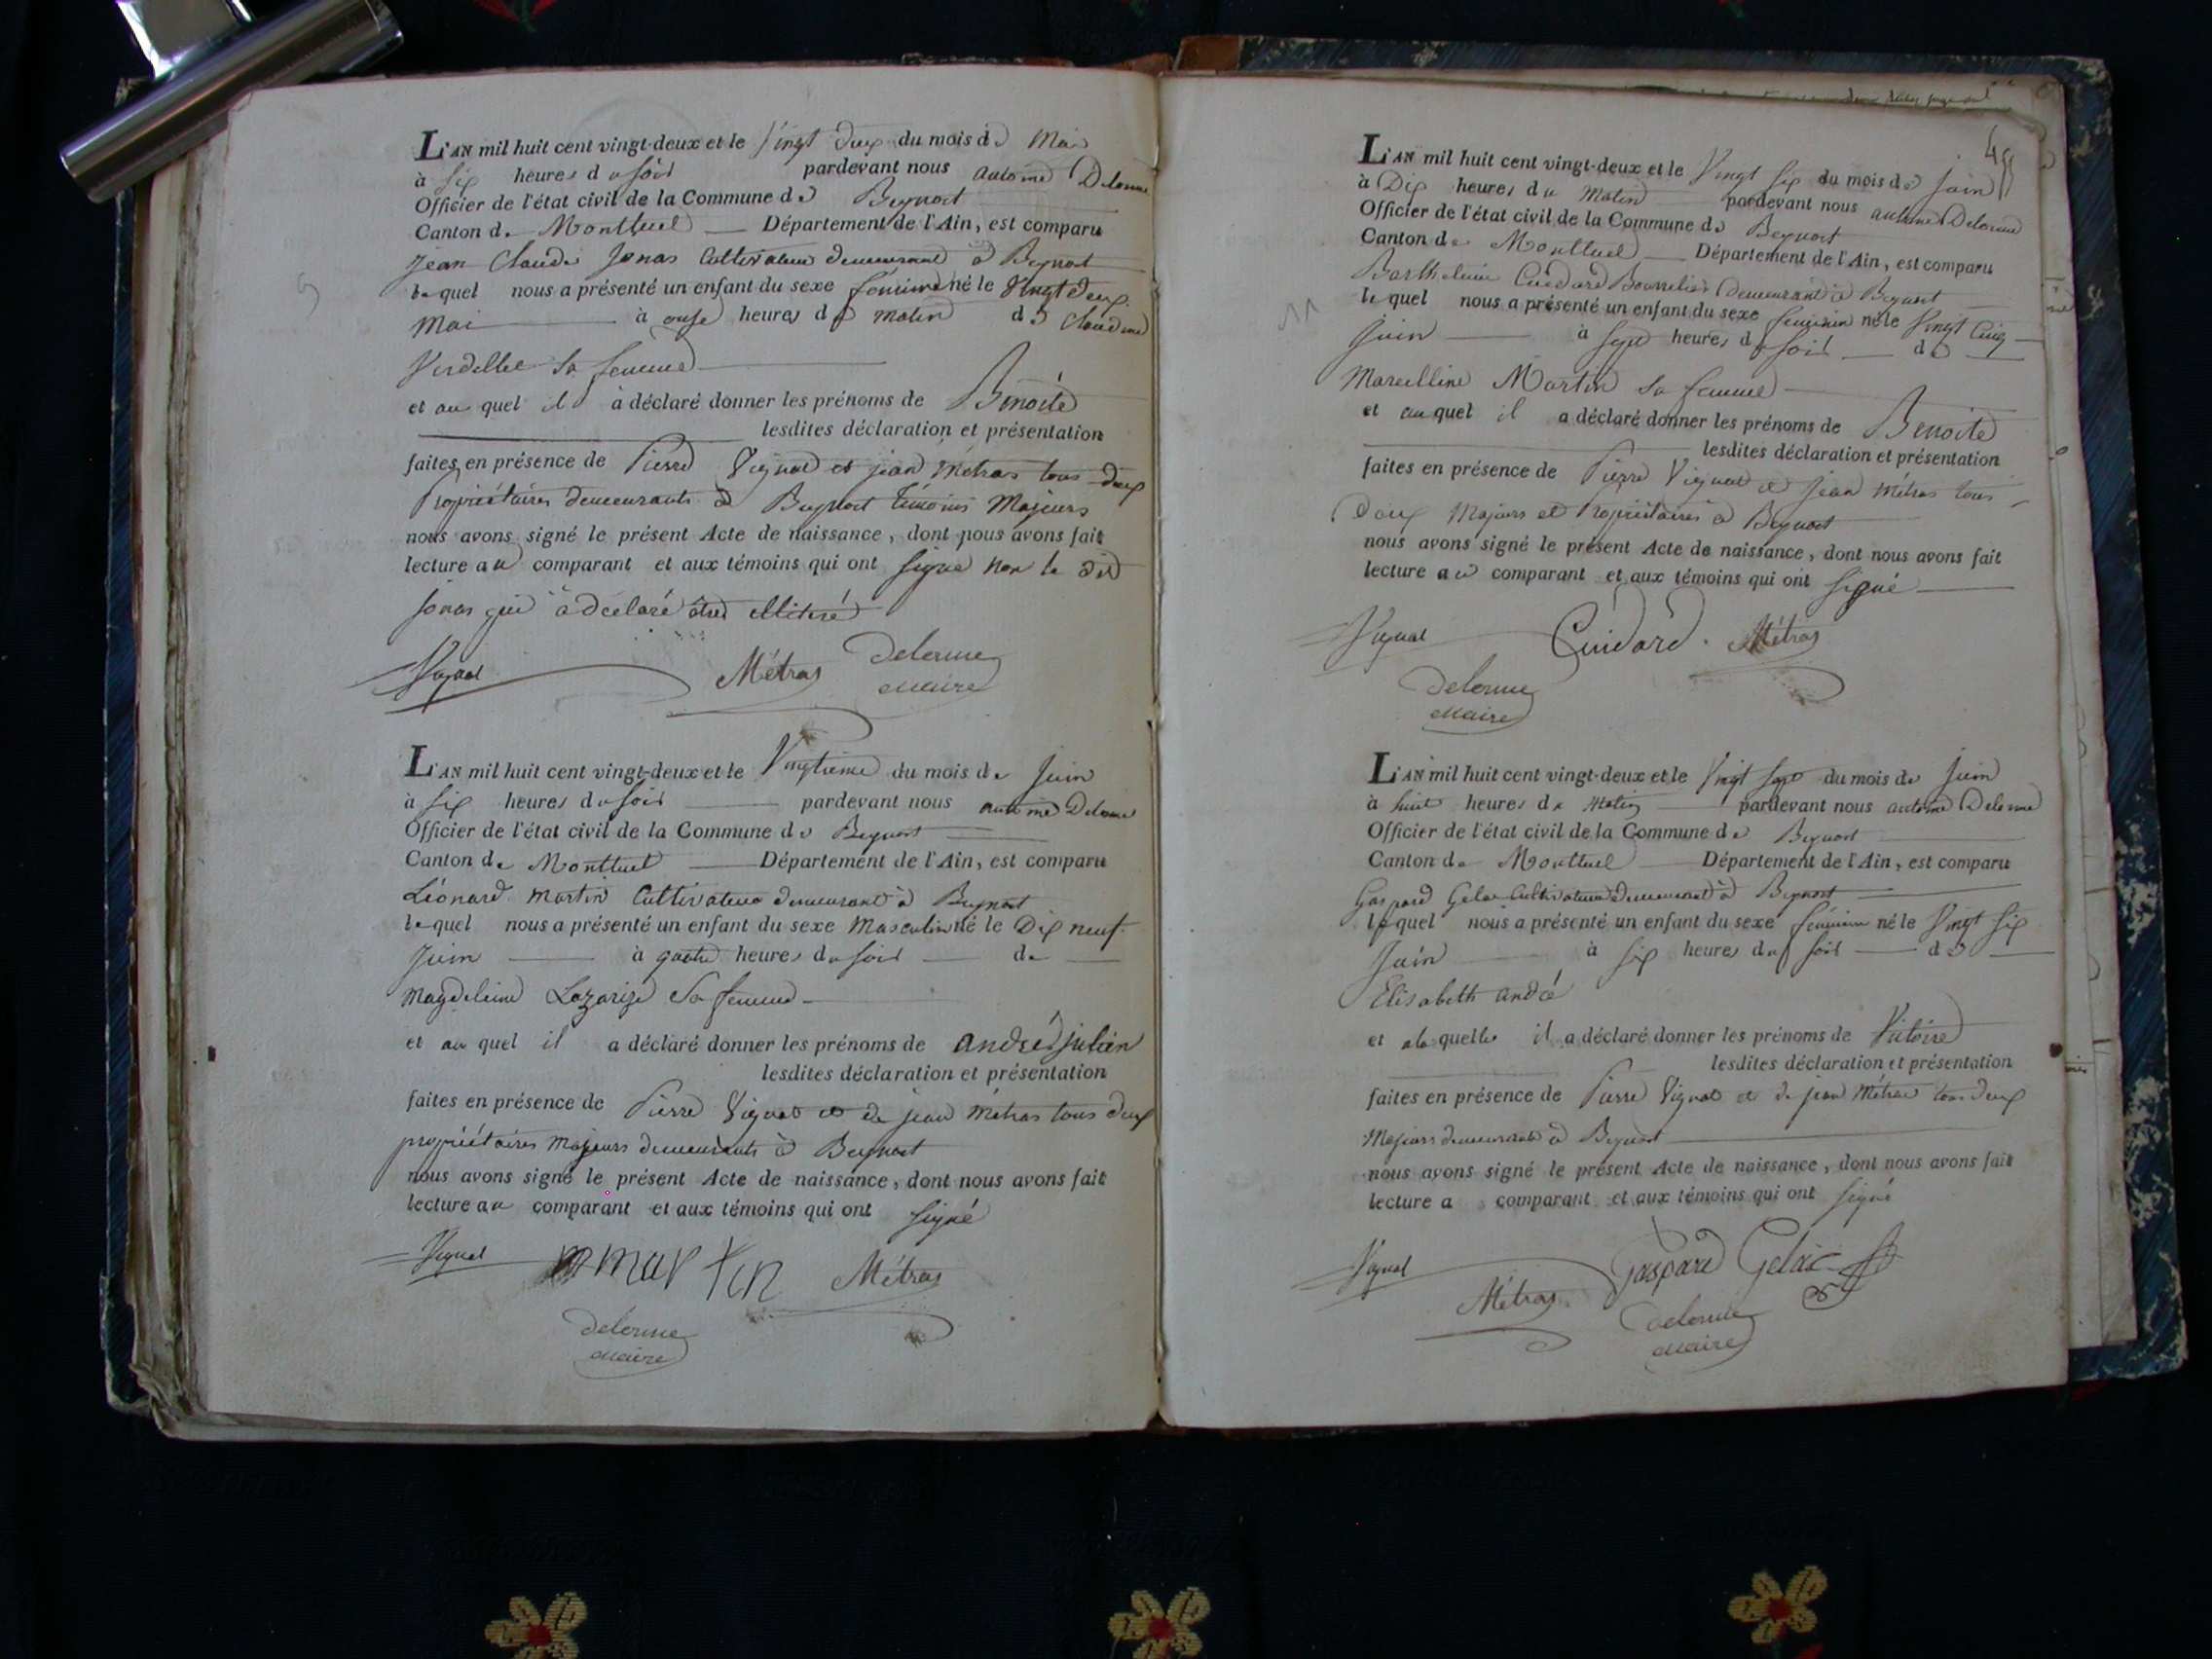 L'AN mil huit cent vingt-deux et le Vingt deux du mois de Mai
à six heures du soir pardevant nous antoine Delorme
Officier de l'état civil de la Commune de Beynost
Canton de Montluel Département de l'Ain, est comparu
Jean Claude Jonas Cultivateur demeurant à Beynost
lequel nous a présenté un enfant du sexe féminin né le Vingt deux
Mai à onse heures du matin de Claudine
Verdellet sa femme
et au quel il a déclaré donner les prénoms de Benoite
lesdites déclaration et présentation
faites en présence de Pierre Vignal et jean Métras tous deux
Propriétaires demeurants à Beynost temoins Majeurs
nous avons signé le présent Acte de naissance, dont nous avons fait
lecture au comparant et aux témoins qui ont signé non le dit
Jonas qui a déclaré être illitéré
Vignal Métras Delorme
Maire
L'AN mil huit cent vingt-deux et le Vingtieme du mois de Juin
à six heures du soir pardevant nous antoine Delorme
Officier de l'état civil de la Commune de Beynost
Canton de Montluel Département de l'Ain, est comparu
Léonard Martin Cultivateur demeurant à Beynost
lequel nous a présenté un enfant du sexe Masculin né le Dix neuf
Juin à quatre heures du soir de
Magdeleine Lazarize sa femme
et au quel il a déclaré donner les prénoms de andré julien
lesdites déclaration et présentation
faites en présence de Pierre Vignal et de jean Métras tous deux
propriétaires Majeurs demeurants à Beynost
nous avons signé le présent Acte de naissance, dont nous avons fait
lecture au comparant et aux témoins qui ont signé
Vignal martin Métras
Delorme
Maire
L'AN mil huit cent vingt-deux et le Vingt six du mois de Juin
à Dix heures du Matin pardevant nous antoine Delorme
Officier de l'état civil de la Commune de Beynost
Canton de Montluel Département de l'Ain, est comparu
Barthelemie Cuidard Bourrelier Demeurant à Beynost
lequel nous a présenté un enfant du sexe feminin né le Vingt Cinq
Juin à sept heures du soir de
Marcelline Martin sa femme
et au quel il a déclaré donner les prénoms de Benoite
lesdites déclaration et présentation
faites en présence de Pierre Vignal et Jean Métras tous
Deux Majeurs et Propriétaires à Beynost
nous avons signé le présent Acte de naissance, dont nous avons fait
lecture au comparant et aux témoins qui ont signé
Vignal Cuidard Métras
Delorme
Maire
L'AN mil huit cent vingt-deux et le Vingt sept du mois de Juin
à huit heures du Matin pardevant nous antoine Delorme
Officier de l'état civil de la Commune de Beynost
Canton de Montluel Département de l'Ain, est comparu
Gaspard Gelas Cultivateur demeurant à Beynost
lequel nous a présenté un enfant du sexe féminin né le Vingt six
Juin à six heures du soir de
Elisabeth andré
et a laquelle il a déclaré donner les prénoms de Victoire
lesdites déclaration et présentation
faites en présence de Pierre Vignal et de jean Métras tous deux
Majeurs demeurants à Beynost
nous avons signé le présent Acte de naissance, dont nous avons fait
lecture a comparant et aux témoins qui ont signé
Vignal Gaspard Gelas
Métras Delorme
Maire